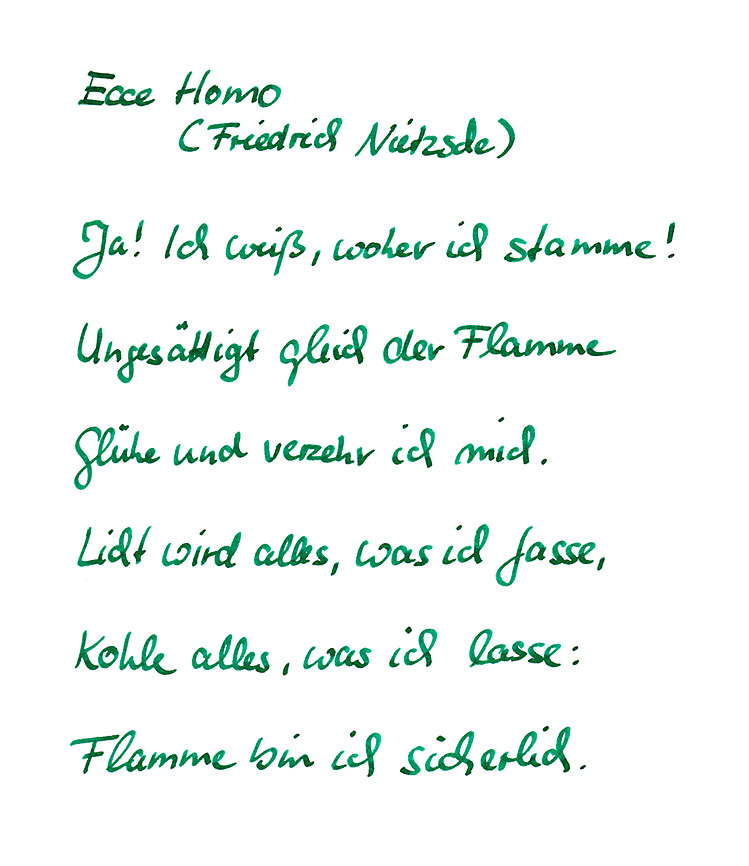 Ecce Homo
(Friedrich Nietzsche)
Ja! Ich weiß, woher ich stamme!
Ungesättigt gleich der Flamme
Glühe und verzehr ich mich.
Licht wird alles, was ich fasse,
Kohle alles, was ich lasse:
Flamme bin ich sicherlich.